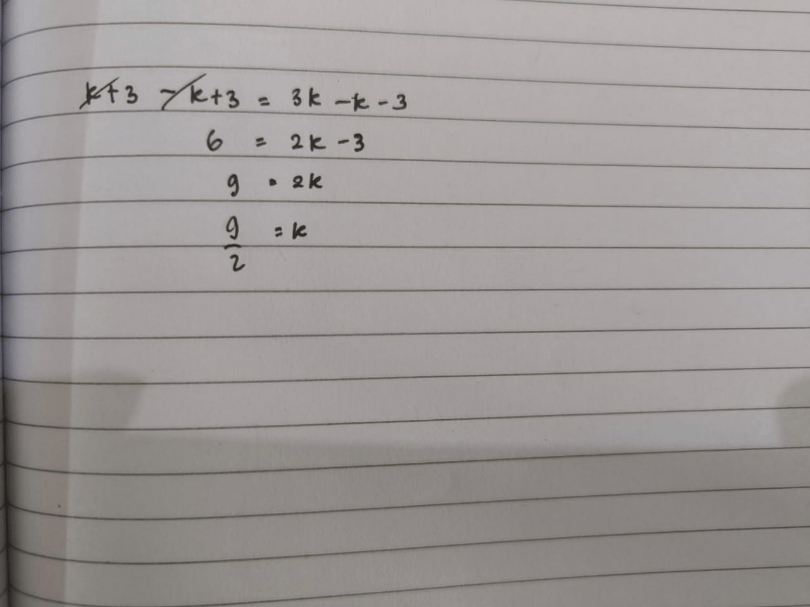 k+3 -k+3 = 3k -k -3
6 = 2k -3
9 = 2k
9/2 = k